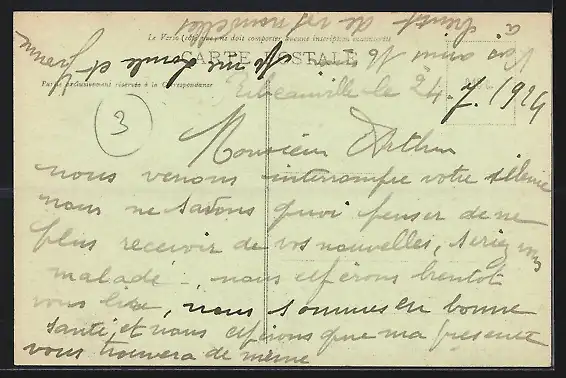 a bientôt de vos nouvelles
Le Verso réservé doit comporter aucune inscription
CARTE POSTALE
Partie exclusivement réservée à la Correspondance
Vos amis
le 24.7.1924
3
Monsieur Arthur
nous venons interrompre votre silence
nous ne savons quoi penser de ne
plus recevoir de vos nouvelles, seriez vous
malade - nous espérons bientôt
vous lire, nous sommes en bonne
santé, et nous espérons que ma présente
vous trouvera de même